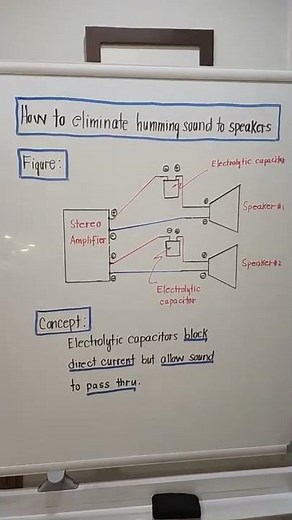 How to eliminate humming sound to speakers
Figure:
Electrolytic capacitor
Stereo
Amplifier
Speaker#1
Speaker#2
Electrolytic
capacitor
Concept:
Electrolytic capacitors block
direct current but allow sound
to pass thru.